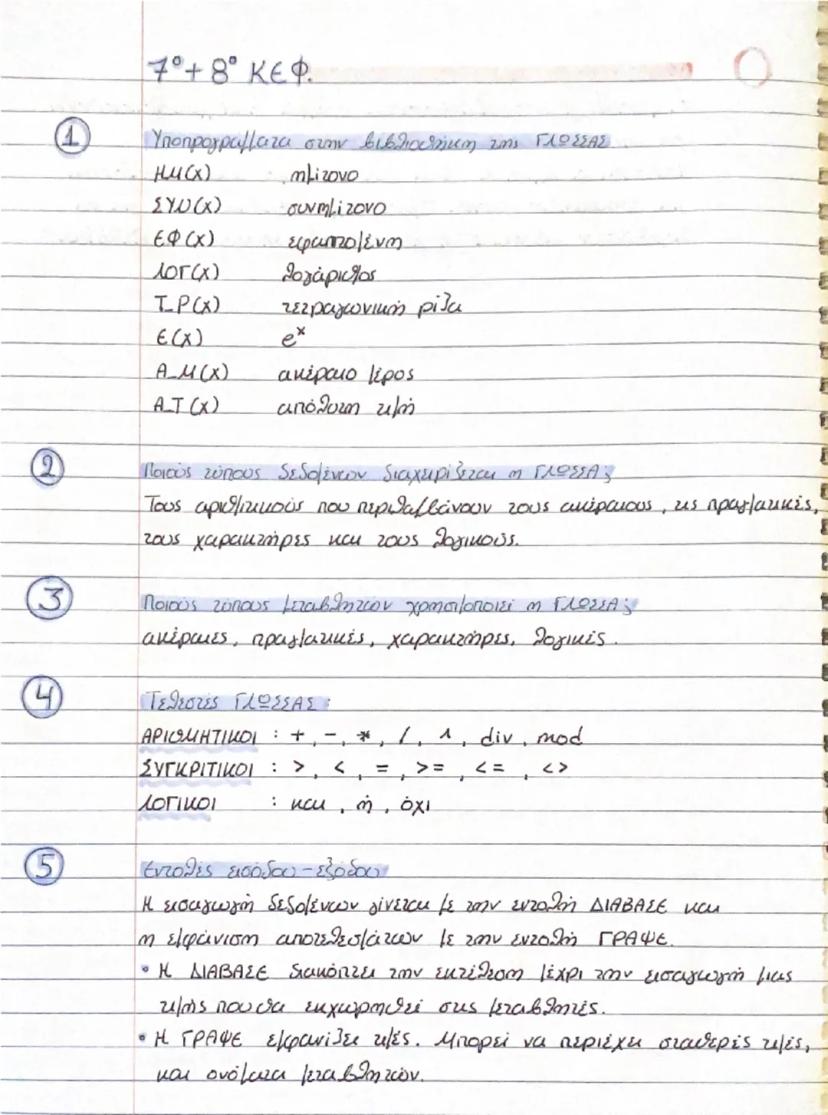 7° + 8° ΚΕΦ.
1 Υποπρογράμματα στην βιβλιοθήκη της ΓΛΩΣΣΑΣ
ΗΜ(Χ) ημίτονο
ΣΥΝ(Χ) συνημίτονο
ΕΦ(Χ) εφαπτομένη
ΛΟΓ(Χ) λογάριθμος
Τ_Ρ(Χ) τετραγωνική ρίζα
Ε(Χ) eˣ
Α_Μ(Χ) ακέραιο μέρος
Α_Τ(Χ) απόλυτη τιμή
2 Ποιούς τύπους δεδομένων διαχειρίζεται η ΓΛΩΣΣΑ;
Τους αριθμητικούς που περιλαμβάνουν τους ακέραιους, τις πραγματικές,
τους χαρακτήρες και τους λογικούς.
3 Ποιούς τύπους μεταβλητών χρησιμοποιεί η ΓΛΩΣΣΑ;
ακέραιες, πραγματικές, χαρακτήρες, λογικές.
4 Τελεστές ΓΛΩΣΣΑΣ:
ΑΡΙΘΜΗΤΙΚΟΙ : +, -, *, /, ^, div, mod
ΣΥΓΚΡΙΤΙΚΟΙ : >, <, =, >=, <=, <>
ΛΟΓΙΚΟΙ : και, ή, όχι
5 Εντολές εισόδου - εξόδου
Η εισαγωγή δεδομένων γίνεται με την εντολή ΔΙΑΒΑΣΕ και
η εμφάνιση αποτελεσμάτων με την εντολή ΓΡΑΨΕ.
• Η ΔΙΑΒΑΣΕ διακόπτει την εκτέλεση μέχρι την εισαγωγή μιας
τιμής που θα εκχωρηθεί στις μεταβλητές.
• Η ΓΡΑΨΕ εμφανίζει τιμές. Μπορεί να περιέχει σταθερές τιμές,
και ονόματα μεταβλητών.